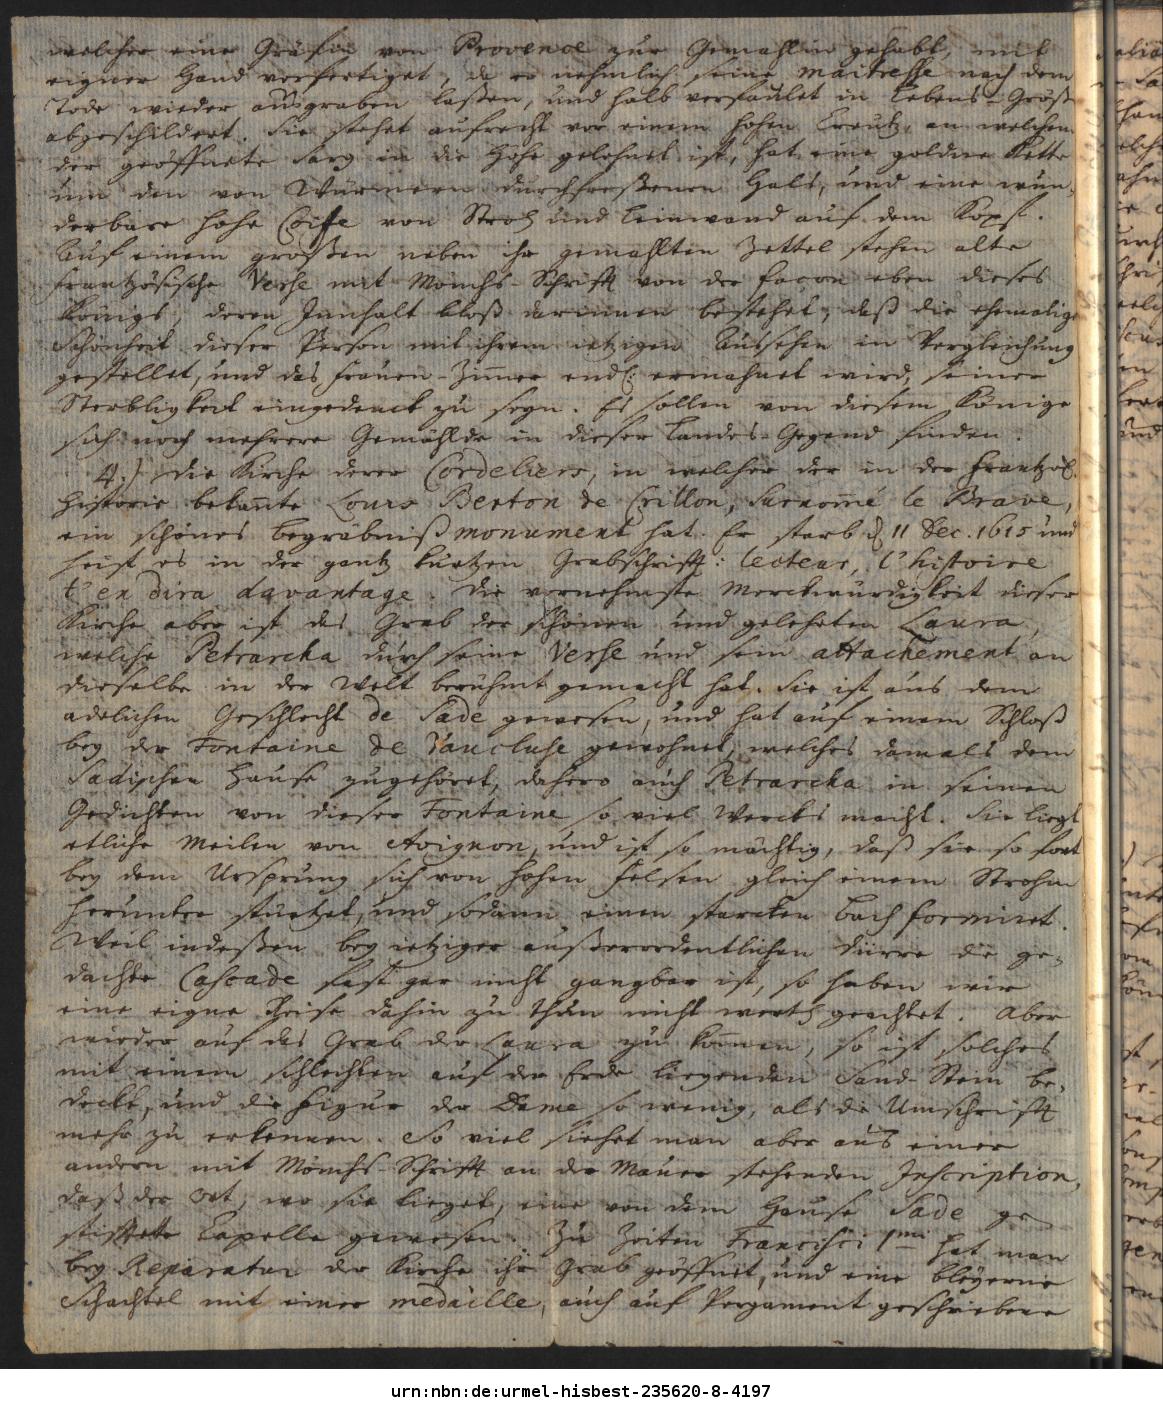 welcher eine Gräfin von Provence zur Gemahlin gehabt, mit
eigner Hand verfertiget, da er nehmlich seine maitresse nach dem
Tode wieder ausgraben laßen, und halb verfaulet in Lebens-Größe
abgeschildert. Sie stehet aufrecht vor einem hohen Creutz, an welchem
der geöffnete Sarg in die Höhe gelehnet ist, hat eine goldne Kette
um den von Würmern durchfreßenen Hals, und eine wun-
derbare hohe Coife von Stroh und Leinwand auf dem Kopf.
Auf einem großen neben ihr gemahlten Zettel stehen alte
frantzösische Verse mit Mönchs-Schrifft von der façon eben dieses
Königs, deren Innhalt bloß darinnen bestehet, daß die ehemalige
Schönheit dieser Person mit ihrem ietzigen Aussehen in Vergleichung
gestellet, und das Frauen-Zimmer endl. ermahnet wird, seiner
Sterbligkeit eingedenck zu seyn. Es sollen von diesem Könige
sich noch mehrere Gemählde in dieser Landes-Gegend finden.
4.) Die Kirche derer Cordeliers, in welcher der in der Frantzös.
Historie bekannte Louis Berton de Crillon, surnommé le Brave,
ein schönes Begräbnißmonument hat. Er starb d. 11 Dec. 1615 und
heist es in der gantz kurtzen Grabschrifft: lecteur, l'histoire
t'en dira davantage. Die vornehmste Merckwürdigkeit dieser
Kirche aber ist das Grab der schönen und gelehrten Laura,
welche Petrarcha durch seine Verse und sein attachement an
dieselbe in der Welt berühmt gemacht hat. Sie ist aus dem
adelichen Geschlecht de Sade gewesen, und hat auf einem Schloß
bey der Fontaine de Vaucluse gewohnet, welches damals dem
Sadischen Hause zugehöret, dahero auch Petrarcha in seinen
Gedichten von dieser Fontaine so viel Wercks macht. Sie liegt
etliche Meilen von Avignon, und ist so mächtig, daß sie so fort
bey dem Ursprung sich von hohen Felsen gleich einem Strohm
herunter stürtzet, und sodann einen starcken Bach formiret.
Weil indeßen bey ietziger außerordentlichen Dürre die ge-
dachte Cascade fast gar nicht gangbar ist, so haben wir
eine eigne Reise dahin zu thun nicht werth geachtet. Aber
wieder auf das Grab der Laura zu kommen, so ist solches
mit einem schlechten auf der Erde liegenden Sand-Stein be-
deckt, und die Figur der Dame so wenig, als die Umschrifft
mehr zu erkennen. So viel siehet man aber aus einer
andern mit Mönchs-Schrifft an der Mauer stehenden Inscription,
daß der Ort, wo sie lieget, eine von dem Hause Sade ge-
stifftete Capelle gewesen. Zu Zeiten Francisci 1mi hat man
bey Reparatur der Kirche ihr Grab geöffnet, und eine bleyerne
Schachtel mit einer medaille, auch auf Pergament geschriebene
urn:nbn:de:urmel-hisbest-235620-8-4197